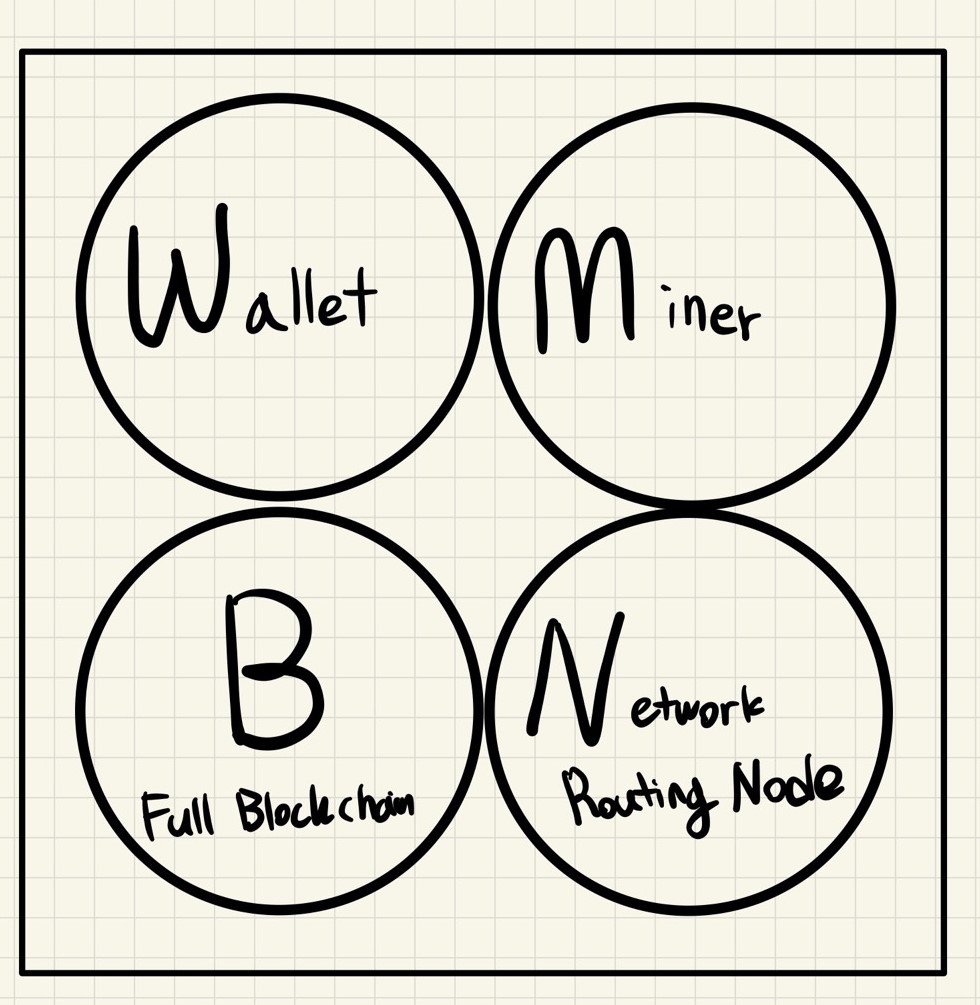 Wallet
Miner
B
Full Blockchain
Network
Routing Node